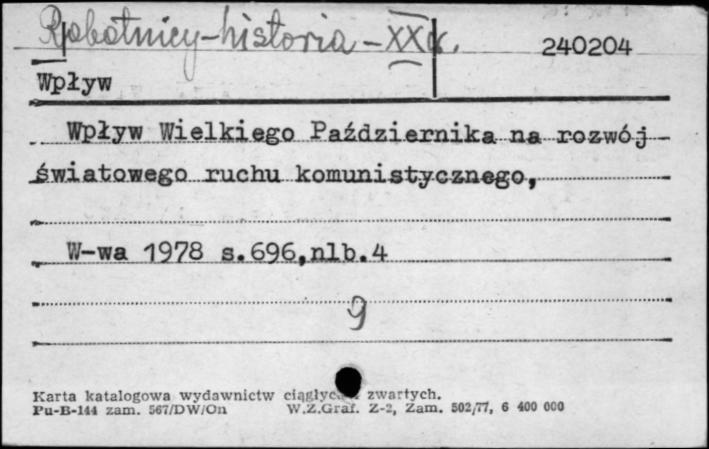 Robotnicy-historia-XXw.
240204
Wpływ
Wpływ Wielkiego Października na rozwój
światowego ruchu komunistycznego,
W-wa 1978 s.696,nlb.4
9
Karta katalogowa wydawnictw zwartych.
Pu-B-144 zam. 567/DW/On W.Z.Graf. Z-2, Zam. 502/77, 6 400 000